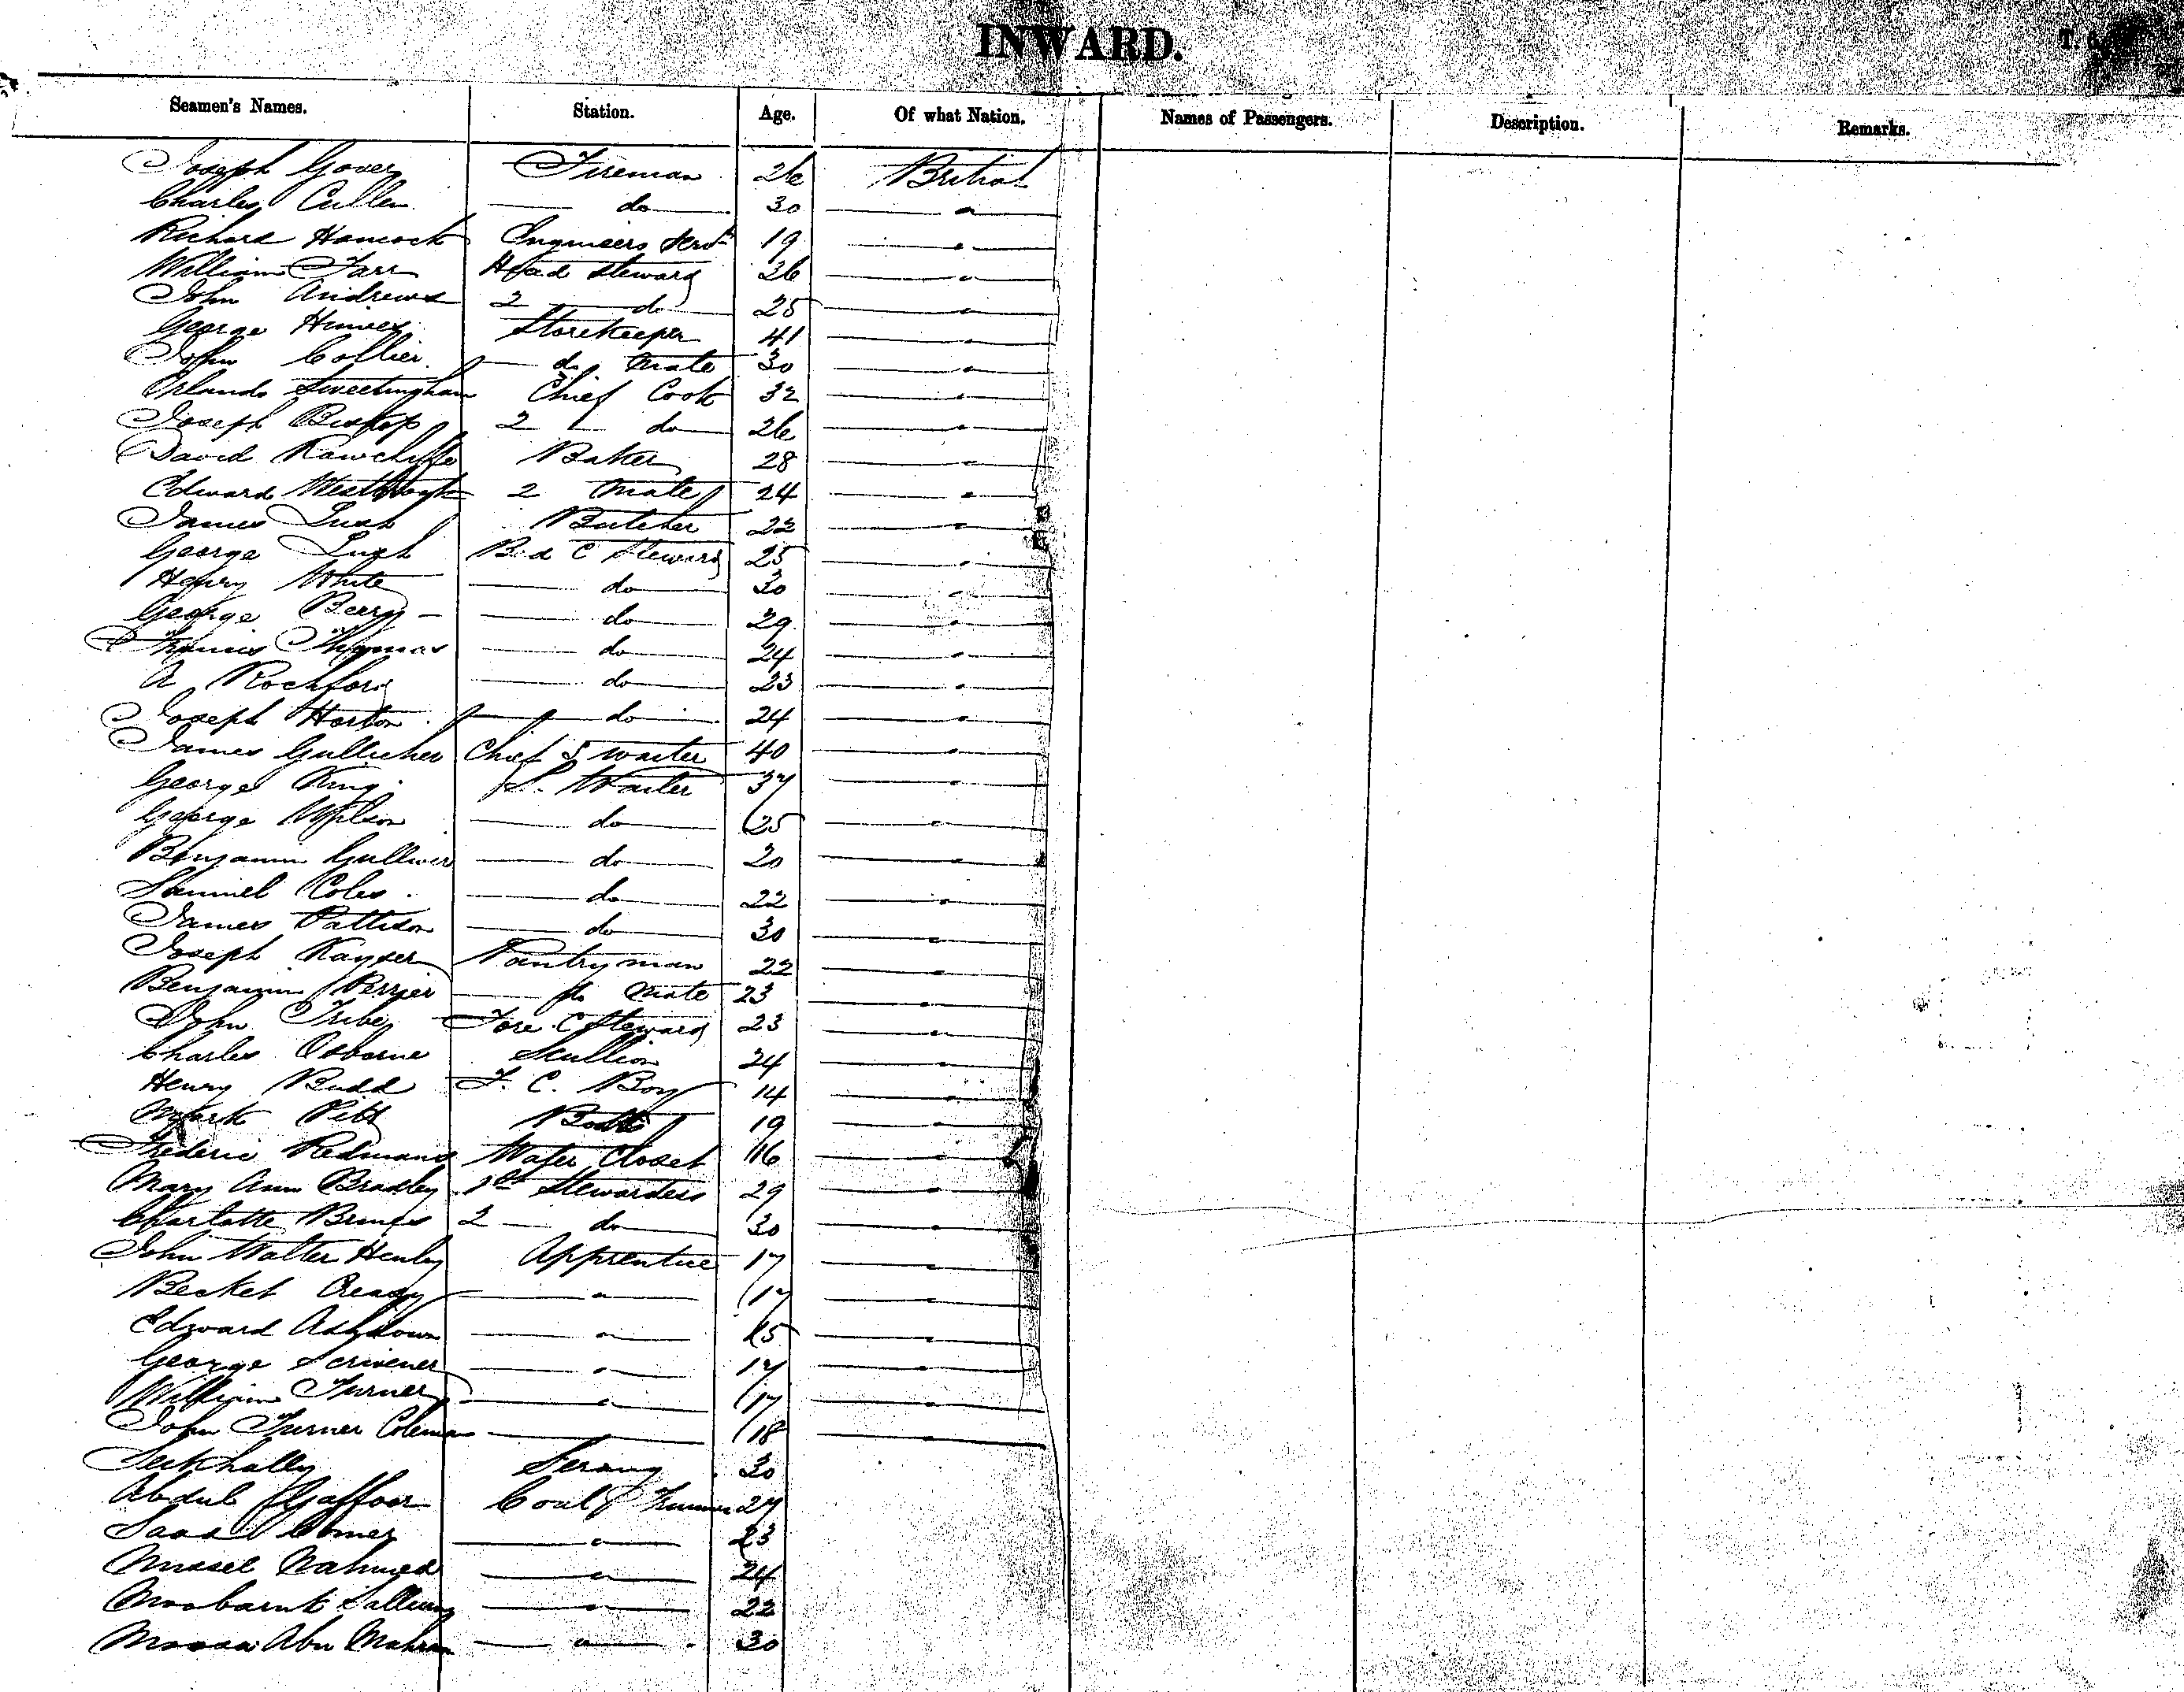 INWARD.
T. 6
Seamen's Names. Station. Age. Of what Nation. Names of Passengers. Description. Remarks.
Joseph Gover Fireman 26 British
Charles Cullen do 30 "
Richard Hancock Engineers Servt 19 "
William Farr Head Steward 26 "
John Andrews 2 do 25 "
George Hinvex Storekeeper 41 "
John Collier do Mate 30 "
Orlando Sweetingham Chief Cook 32 "
Joseph Bishop 2 do 26 "
David Rawcliffe Baker 28 "
Edward 2 Mate 24 "
James Lush Butcher 22 "
George Lush B d C Steward 25 "
Henry White do 30 "
George Berry do 29 "
Francis Thomas do 24 "
A Rochford do 23 "
Joseph Horton do 24 "
James Gullicher Chief S Waiter 40 "
George King S. Waiter 37 "
George Wilson do 25 "
Benjamin Gulliver do 20 "
Samuel Coles do 22 "
James Pattison do 30 "
Joseph Kayser Pantryman 22 "
Benjamin Perrier do Mate 23 "
John Tribe Fore C Steward 23 "
Charles Osborne Scullion 24 "
Henry Budd F. C. Boy 14 "
Mark Pitt Boots 19 "
Frederic Redmand Water Closet 16 "
Mary Ann Bradley 1st Stewardess 29 "
Charlotte 2 do 30 "
John Walter Henley Apprentice 17 "
Becket " 17 "
Edward Ashdown " 15 "
George Scrivener " 17 "
William Turner " 17 "
John Turner Coleman 18 "
Serang 30
Abdul Gaffoor Coal Trimmer 27
" 23
" 24
" 22
Moosa Abu " 30